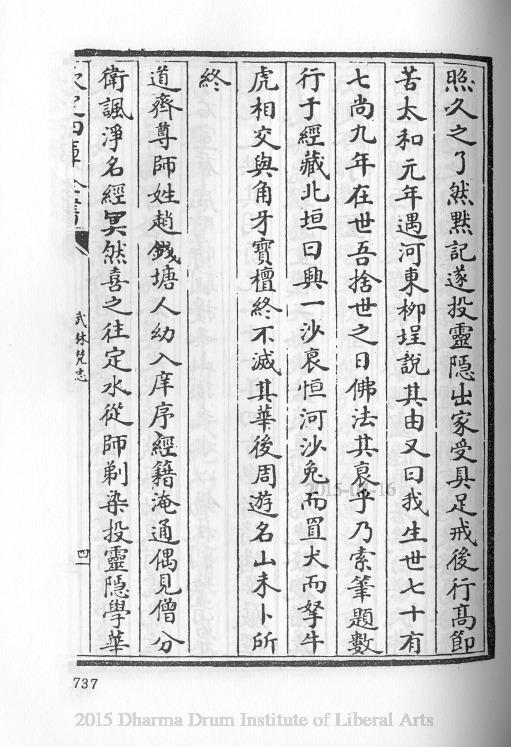 照久之了然黙記遂投靈隠出家受具足戒後行髙節
苦太和元年遇河東栁埕說其由又曰我生世七十有
七尚九年在世吾捨世之日佛法其衰乎乃索筆題數
行于經藏北垣曰興一沙衰恒河沙兔而罝犬而拏牛
虎相交與角牙寳檀終不滅其華後周遊名山未卜所
終
道齊尊師姓趙錢塘人幼入庠序經籍淹通偶見僧分
衛諷淨名經冥然喜之往定水從師剃染投靈隠學華
欽定四庫全書
武林梵志
四一
737
2015-01-16
2015 Dharma Drum Institute of Liberal Arts